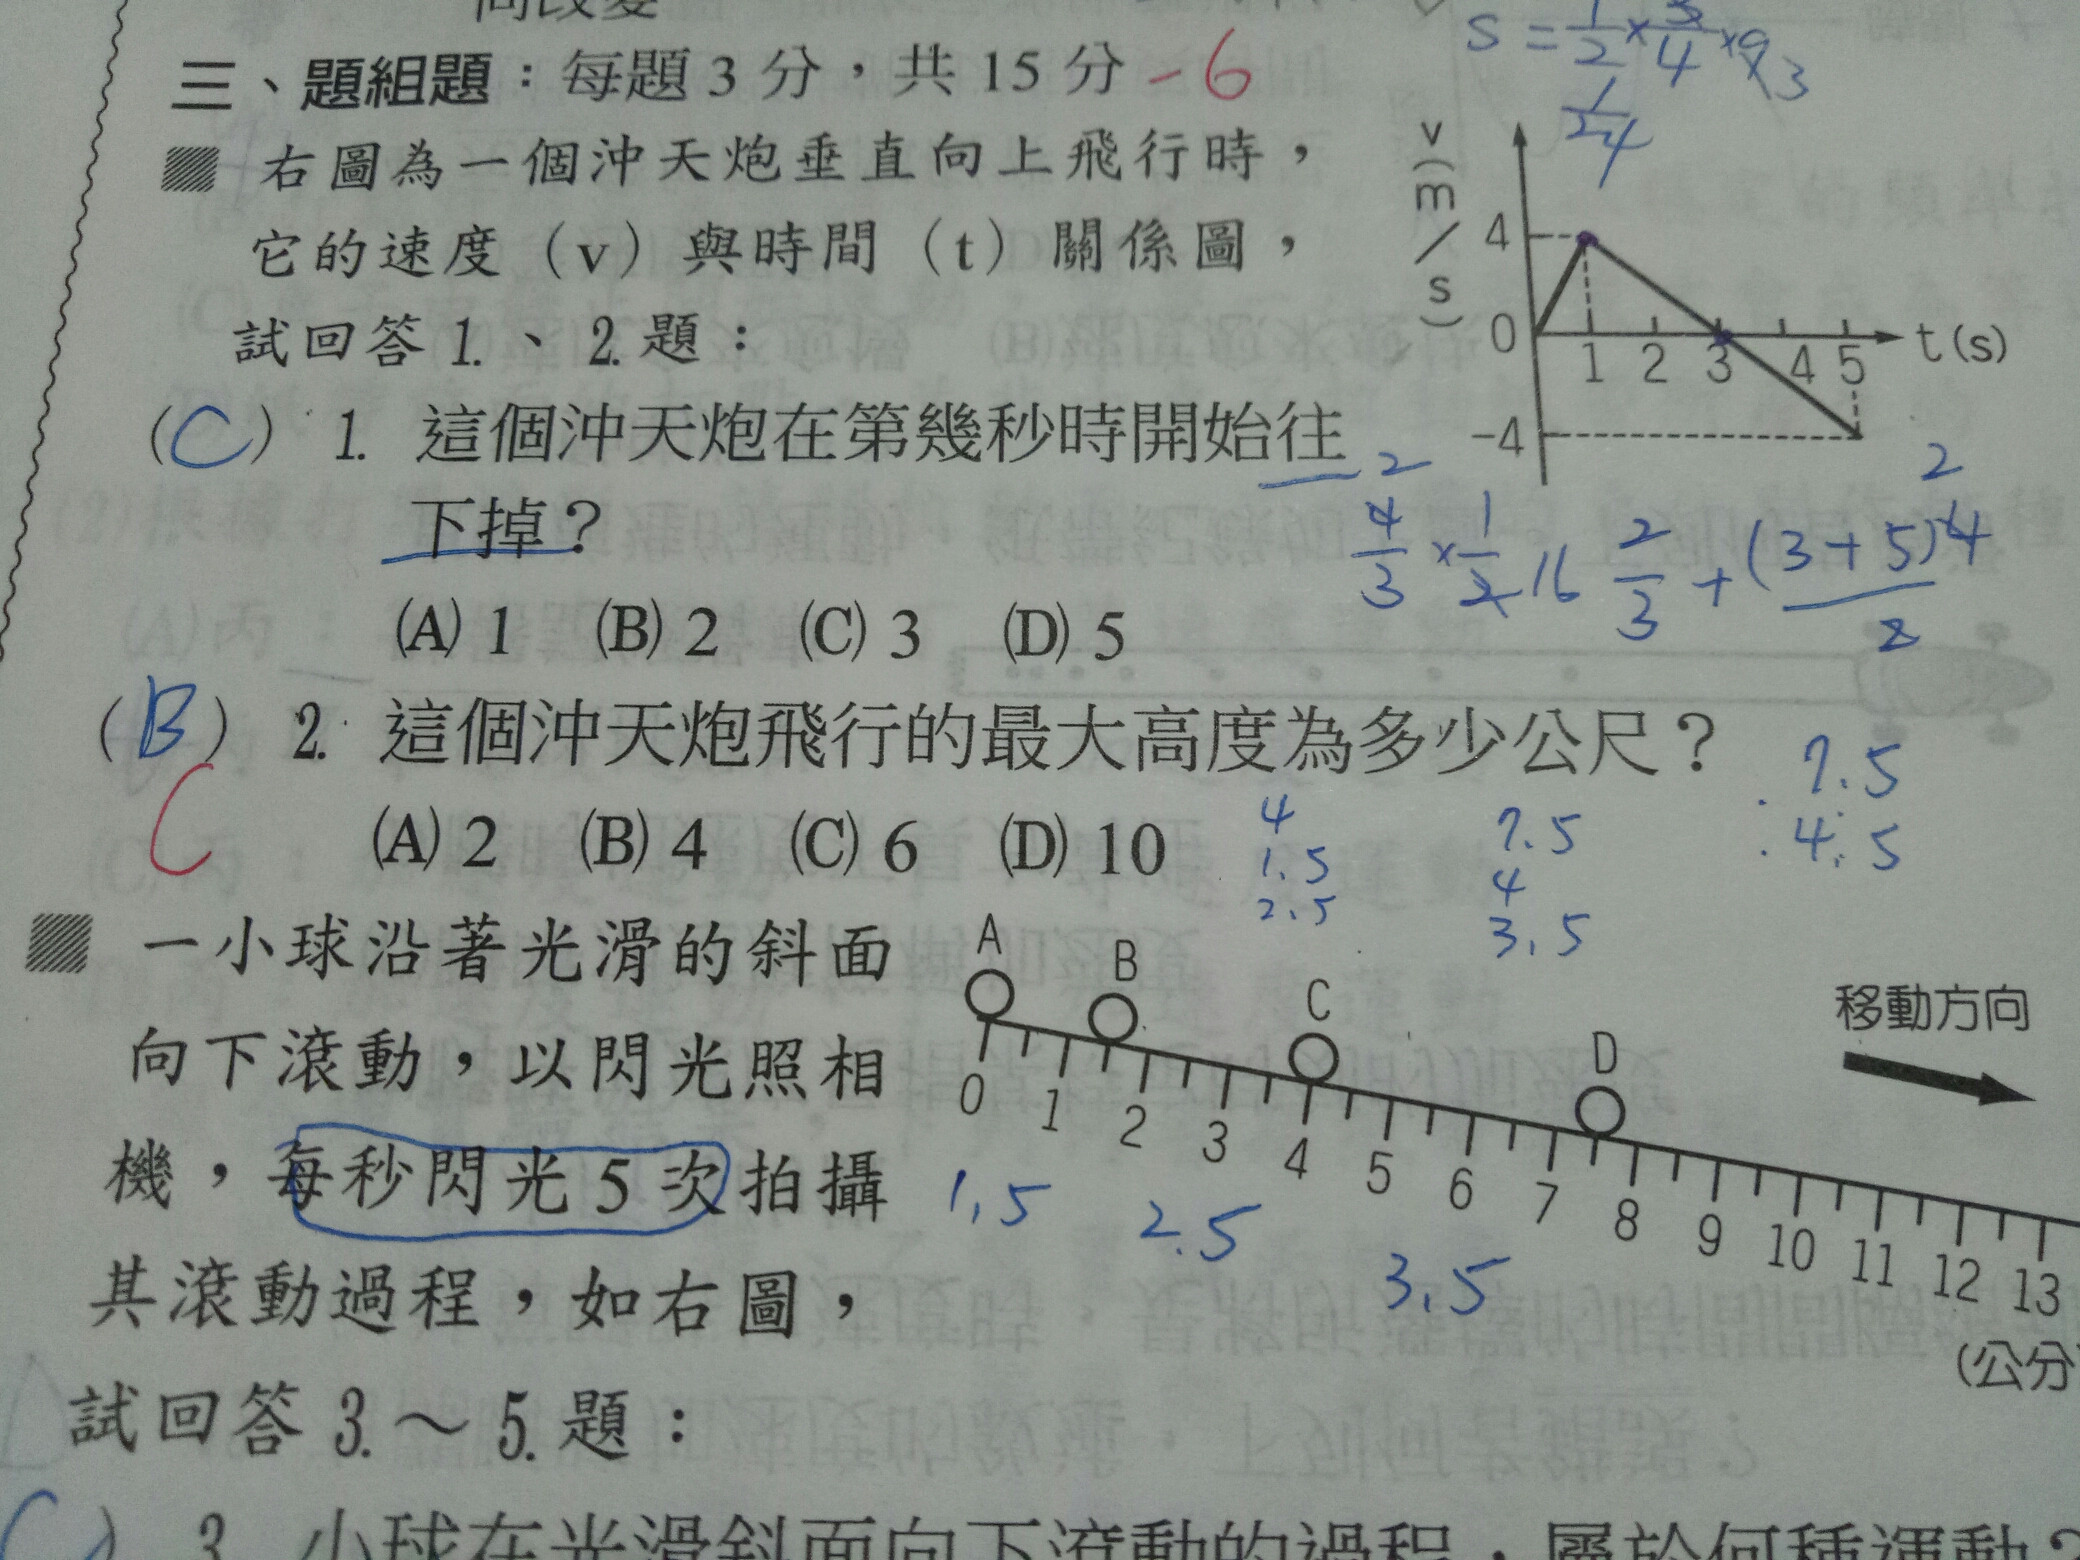 向改變
三、題組題：每題3分，共15分 -6
右圖為一個沖天炮垂直向上飛行時，
它的速度（v）與時間（t）關係圖，
試回答1.、2.題：
S = 1/2 × 3/4 × 9 3
1/24
v(m/s)
4
0
-4
1 2 3 4 5
t(s)
(C) 1. 這個沖天炮在第幾秒時開始往
下掉？
(A) 1 (B) 2 (C) 3 (D) 5
2
4/3 × 1/2
16
2/3 + (3+5)4/2
2
(B) 2. 這個沖天炮飛行的最大高度為多少公尺？
C
(A) 2 (B) 4 (C) 6 (D) 10
4
1.5
2.5
7.5
4
3.5
7.5
4.5
一小球沿著光滑的斜面
向下滾動，以閃光照相
機，每秒閃光5次拍攝
其滾動過程，如右圖，
試回答3.～5.題：
A B C D
移動方向
0 1 2 3 4 5 6 7 8 9 10 11 12 13
(公分
1.5 2.5 3.5
) 3. 小球在光滑斜面向下滾動的過程，屬於何種運動？